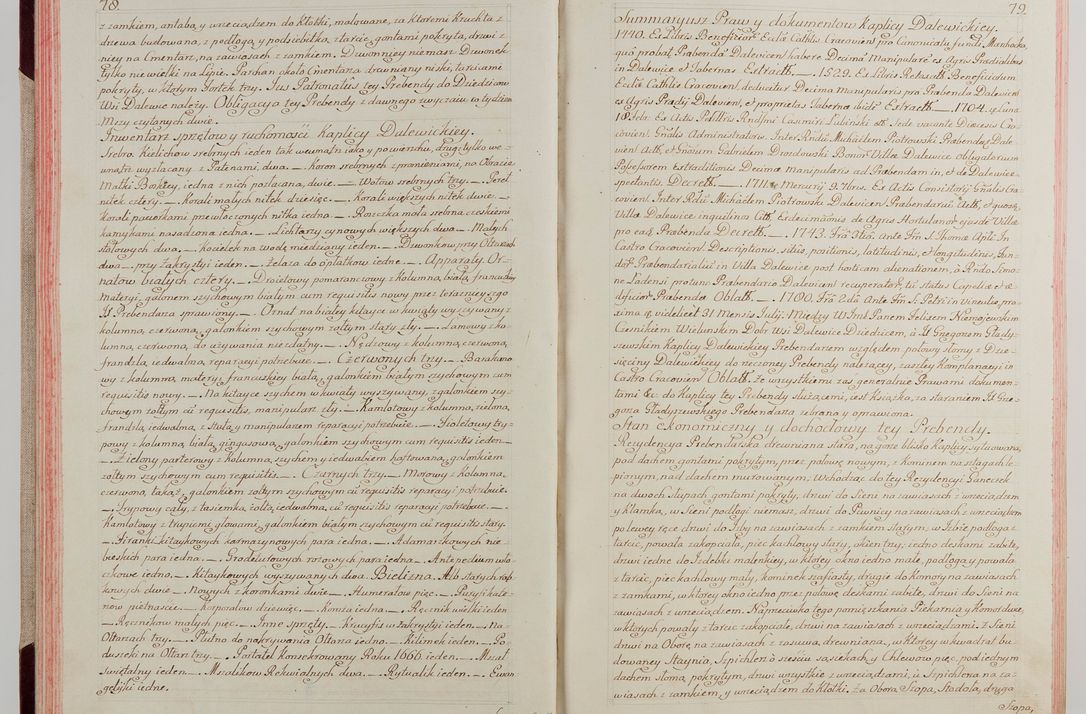 78
z zamkiem, antabą y wrzeciądzem do Kłotki, malowane, za ktoremi Kruchta z
drzewa budowana, z podłogą y podsiebitką z tarcic, gontami pokryta, drzwi z
niey na Cmentarz, na zawiasach z zamkiem. Dzwonnicy niemasz Dzwonek
tylko niewielki na Lipie. Parchan około Cmentarza drzewiany niski, tarcicami
pokryty, w którym Fortek trzy. Jus Patronatus tey Prebendy do Dziedzicow
Wsi Dalewic należy. Obligacya tey Prebendy z dawnego zwyczaiu co tydzien
Mszy czytanych dwie.
Inwentarz sprzętow y ruchomosci Kaplicy Dalewickiey.
Srebro. Kielichow srebrnych ieden tak wewnątrz iako y powierzchu, drugi tylko we-
wnątrz wyzłacany z Patenami, dwa. — Koron srebrnych z promieniami, na Obrazie
Matki Boskiey, iedna z nich pozłacana, dwie. — Wotow srebrnych trzy. — Pereł
nitek cztery. — Korali małych nitek dziesięc. — Korali większych nitek dwie. —
Korali paciorkami przewłoczonych nitka iedna. — Rączka mała srebrna czeskiemi
kamykami nasadzona iedna. — Lichtarzy cynowych większych dwa. — Małych
stołowych dwa. — Kociełek na wodę miedziany ieden. — Dzwonkow przy Ołtarzach
dwa — przy Zakrystyi ieden. — Zelaza do opłatkow iedne. — Apparaty. Or-
natow białych cztery. — Drocistowy pomaranczowy z kolumną białą francuskiey
materyi, galonem szychowym białym cum requisitis nowy przez teraznieyszego
X Prebendarza sprawiony. — Ornat na białey kitayce w kwiaty wyszywany z
kolumną, czerwoną, galonkiem szychowym zołtym stary zły. — Lamowy z ko-
lumną, czerwoną, do uzywania niezdatny. — Nędzowy z kolumną, czerwoną,
frandzlą, iedwabną, reparacyi potrzebuie. — Czerwonych trzy. — Barakano
wy z kolumną, materyi, francuskiey białą, galonkiem białym szychowym cum
requisitis nowy. — Na kitayce szychem w kwiaty wyszywany, z galonkiem szy-
chowym zołtym cũ requisitis, manipularz zły. — Kamlotowy z kolumną, zieloną,
frandzlą, iedwabną, z Stułą y manipularzem reparacyi potrzebuie. — Fioletowy try-
powy z kolumną białą, gingasową, galonkiem szychowym cum requisitis ieden —
— Zielony parterowy z Kolumną, szychem y iedwabiem haftowaną, galonkiem
zołtym szychowym cum requisitis. — Czarnych trzy. — Morowy z Kolumną,
czerwoną, takąż, galonkiem zołtym szychowym cũ requisitis reparacyi potrzebuie.
— Trypowy cały, z tasiemką, zołtą iedwabną, cũ requisitis reparacyi potrzebuie. —
Kamlotowy z trupiemi głowami, galonkiem białym szychowym cũ requisitis stary.
— Firanki kitaykowych karmazynowych para iedna. — Adamaszkowych nie-
bieskich para iedna. — Gradeturowych rozowych para iedna. — Antepedium włó-
czkowe iedno. — Kitaykowych wyszywanych dwa. Bielizna. Alb starych rąb-
kowych dwie — nowych z koronkami dwie. — Humerałow pięc. — Puryfikate-
rzow piętnascie. — Korporałow dziewięc. — Komża iedna. — Ręcznik wielki ieden
— Ręcznikow małych pięc. Inne sprzęty. — Krucyfix w zakrystyi ieden. — Na
Ołtarzach trzy. — Płutno do nakrywania Ołtarza iedno. — Kilimek ieden. — Po
duszek na Ołtarz trzy. — Portatel Konsekrowany Roku 1666 ieden. — Mszał
swiętalny ieden. — Mszalikow Rekwialnych dwa. — Rytualik ieden. — Ewan
gelyiki iedne.
79
Summaryusz Praw y dokumentow kaplicy Dalewickiey.
1440. Ex Libris Beneficior Ecclæ Cathlis Cracovien pro Canonicatu fundi, Manhocka,
qui probat Præbenda Dalewicen habere Decimã Manipularẽ ex Agris Prædialibus
in Dalewice et Tabernas Extractb. — 1529. Ex Libris Retaxatb Beneficiorum
Ecclæ Cathlis Cracovien, deducitur Decima manipularis pro Præbenda Dalewicen
ex Agris Prædij Dalewicen, et proprietas Taberna ibidẽ Extractb. — 1704. die Luna
18 Febr. Ex Actis Pblliris Rndsmi Casimiri Łubinski stt. Sede vacante Diœcesis Cra-
covien Gnalis Administratoris. Inter Rndũ Michaelem Piotrowski Præbenday Dale-
wicen Actb, et Gnosum Gabrielem Drozdowski Bonor Villæ Dalewice obligatorium
Possessorem extraditionis Decimæ manipularis ad Præbendam in, et de Dalewice
spectantis Decretb. — 1711. Mercurij 9. 7bris. Ex Actis Consistorij Gnalis Cra-
covien. Inter Rdũ Michaelem Piotrowski Dalewicen Præbendariũ Actb, et quosq
Villæ Dalewice inquilinos Cittb. Ex decimaõnis de Agris Hortulanor ejusde Villæ
pro eaq Præbenda Decretb. — 1743. Fra 3tia ante Fm S. Thomæ Apli. In
Castro Cracovien Descriptionis, sitûs, portionis, latitudinis, et longitudinis, Fun-
dor Præbendarialiũ in Villa Dalewice post hosticam alienationem, à Rndo Simo-
ne Ladenski protunc Præbendario Dalewicen recuperator tũ status Capellæ et æ-
dificior Præbendæ Oblatb. — 1780. Fra 2da ante Fm S. Petri in Vinculis pro-
xima q videlicet 31 Mensis Julij. Między W Iml Panem Felixem Niemojewskim
Czesnikiem Wieluńskim Dobr Wsi Dalewice Dziedzicem, à X Grzegorzem Głady-
szewskim kaplicy Dalewickiey Prebendarzem względem połowy słomy z Dzie-
sięciny Dalewickiey do rzeczoney Prebendy należącey, zaszłey Komplanacyi in
Castro Cracovien Oblatb. Ze wszystkiemi zas generalnie Prawami dokumen-
tami &c do Kaplicy tey Prebendy służącemi, iest Książka, za staraniem X Grze-
gorza Gładyszewskiego Prebendarza zebrana y oprawiona.
Stan ekonomiczny y dochodowy tey Prebendy.
Rezydencya Prebendarska drewniana stara, na gorze blisko Kaplicy sytuowana,
pod dachem gontami pokrytym, przez połowę nowym, z Kominem na szlagach le-
pionym, nad dachem murowanym. Wchodząc do tey Rezydencyi Ganeczek
na dwoch słupach gontami pokryty, drzwi do Sieni na zawiasach z wrzeciądzem
y klamką, w Sieni podłogi niemasz, drzwi do Piwnicy na zawiasach z wrzeciądzem
po lewey ręce drzwi do Izby na zawiasach z zamkiem starym, w Izbie podłoga z
tarcic, powała zakopciała, piec kachlowy stary, okien trzy, iedno deskami zabite,
drzwi iedne do Izdebki malenkiey, w ktorey okno iedno małe, podłoga y powała
z tarcic, piec kachlowy mały, kominek szafiasty, drugie do Komory na zawiasach
z zamkami, w ktorey okno iedno przez połowę deskami zabite, drzwi do Sieni na
zawiasach z wrzeciądzem. Naprzeciwko tego pomieszkania Piekarnia y Komor dwie,
w ktorych powały z tarcic zakopciałe, drzwi na zawiasach z wrzeciądzami. Z Sieni
drzwi na Oborę, na zawiasach z zasuwą, drewnianą, w ktorey w kwadrat bu-
dowaney Staynia, Szpichlerz o sześciu sąsiekach, y Chlewow pięc, pod iednym
dachem słomą pokrytym, drzwi wszystkie z wrzeciądzami, u Szpichlerza na za-
wiasach z zamkiem, y wrzeciądzem do Kłotki. Za Oborą Szopa, Stodoła, druga
Szopa,